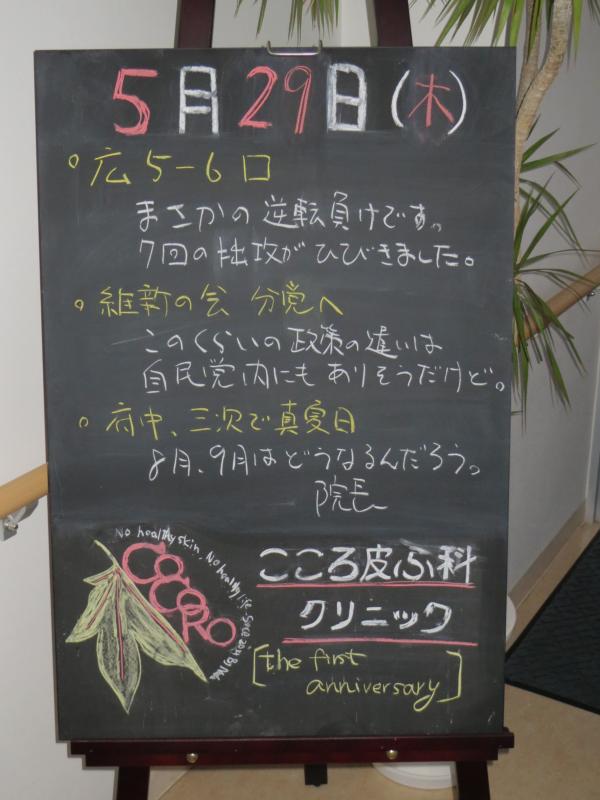 5月29日(木)
○広5-6ロ
まさかの逆転負けです。
7回の拙攻がひびきました。
○維新の会 分党へ
このくらいの政策の違いは
自民党内にもありそうだけど。
○府中、三次で真夏日
8月、9月はどうなるんだろう。
院長
No healthy skin, No healthy life.
COCORO
こころ皮ふ科
クリニック
[the first
anniversary]